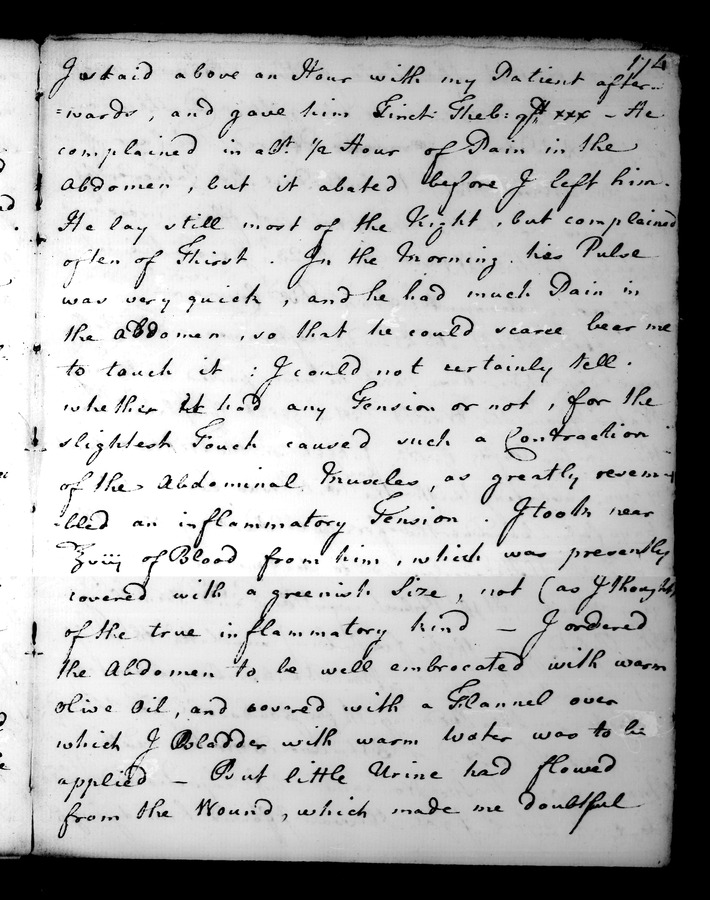 174
I staid above an Hour with my Patient after-
=wards, and gave him Tinct: Theb: gtt xxx - He
complained in abt. 1/2 Hour of Pain in the
Abdomen, but it abated before I left him.
He lay still most of the Night, but complained
often of Thirst. In the Morning his Pulse
was very quick, and he had much Pain in
the Abdomen, so that he could scarce bear me
to touch it: I could not certainly tell
whether it had any Tension or not, for the
slightest Touch caused such a Contraction
of the Abdominal Muscles, as greatly resem-
-bled an inflammatory Tension. I took near
℥viij of Blood from him, which was presently
covered with a greenish Size, not (as I thought)
of the true inflammatory kind — I ordered
the Abdomen to be well embrocated with warm
olive Oil, and covered with a Flannel over
which I Bladder with warm Water was to be
applied — But little Urine had flowed
from the Wound, which made me doubtful